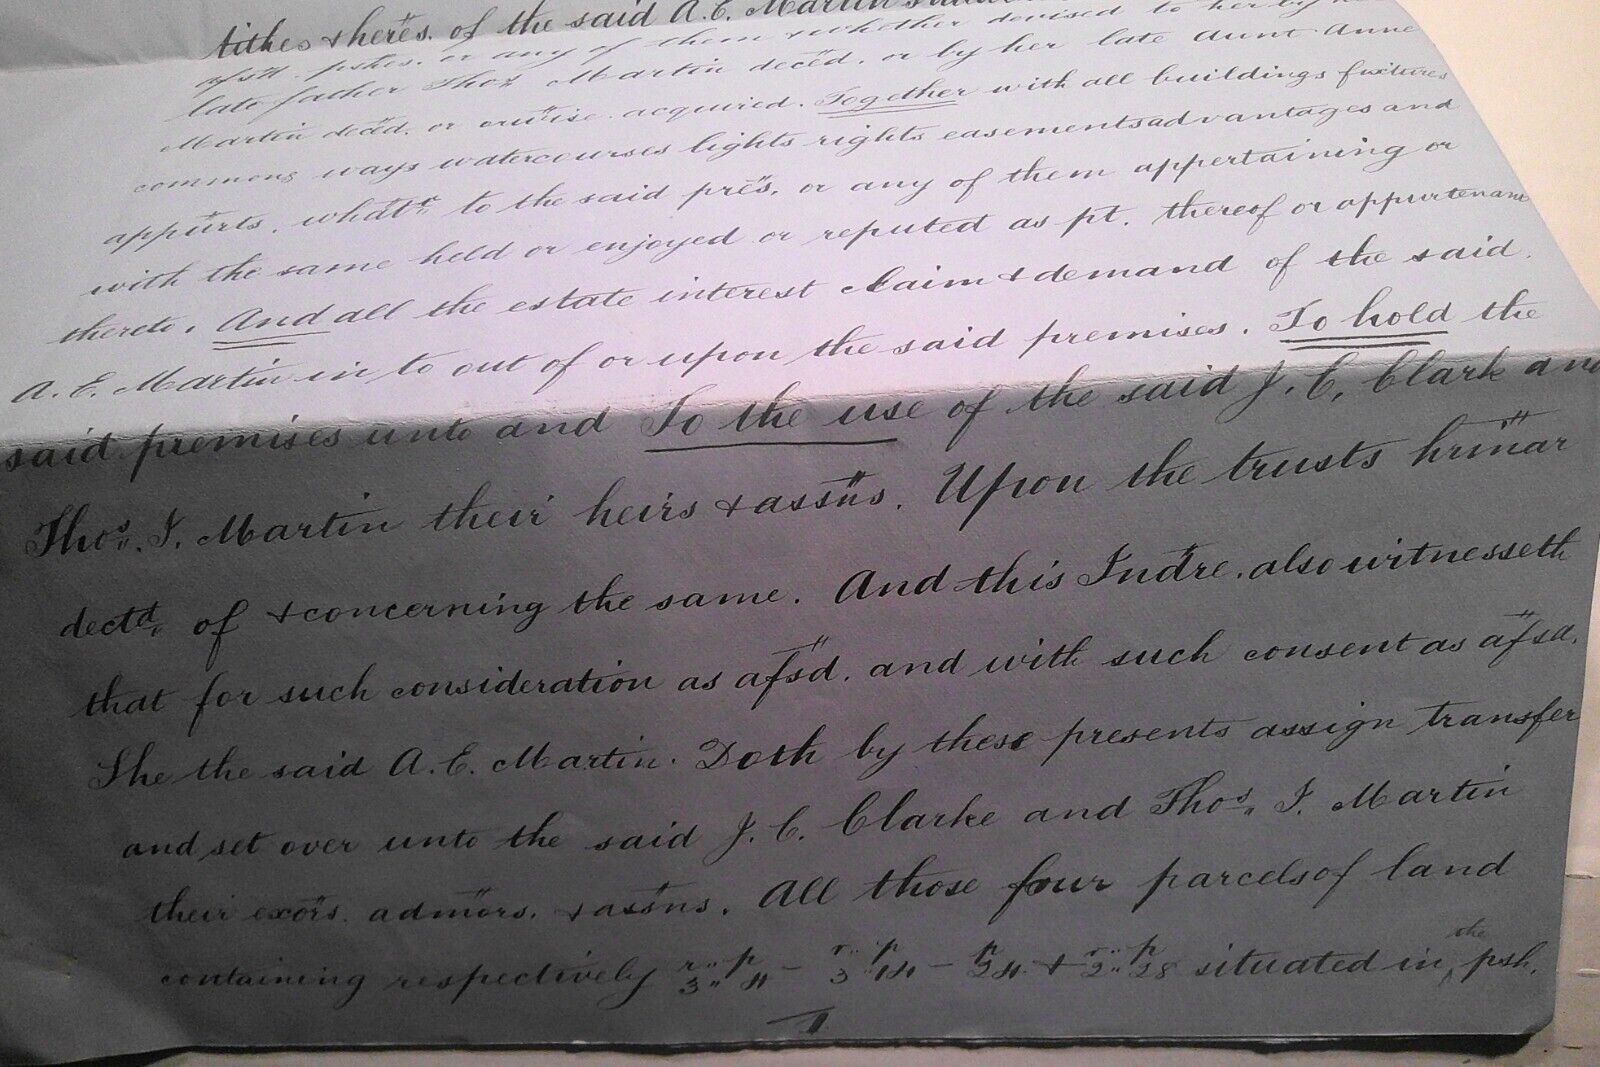 tithes & heres. of the said A. E. Martin
afsd. pshes. or any of them & whether devised to her by
late father Thos. Martin deced. or by her late aunt Anne
Martin deced. or orwise. acquired. Together with all buildings fixtures
commons ways watercourses lights rights easements advantages and
appurts. whatr. to the said pres. or any of them appertaining or
with the same held or enjoyed or reputed as pt. thereof or appurtenant
thereto. And all the estate interest claim & demand of the said
A. E. Martin in to out of or upon the said premises. To hold the
said premises unto and To the use of the said J. C. Clark and
Thos. J. Martin their heirs & assns. Upon the trusts hrinar
dectd. of & concerning the same. And this Indre. also witnesseth
that for such consideration as afsd. and with such consent as afsd.
She the said A. E. Martin. Doth by these presents assign transfer
and set over unto the said J. C. Clarke and Thos. J. Martin
their exors. admors. & assns. All those four parcels of land
containing respectively r 3 " p 4 - r 3 " p 14 - p 24 & r 2 " p 28 situated in the psh.